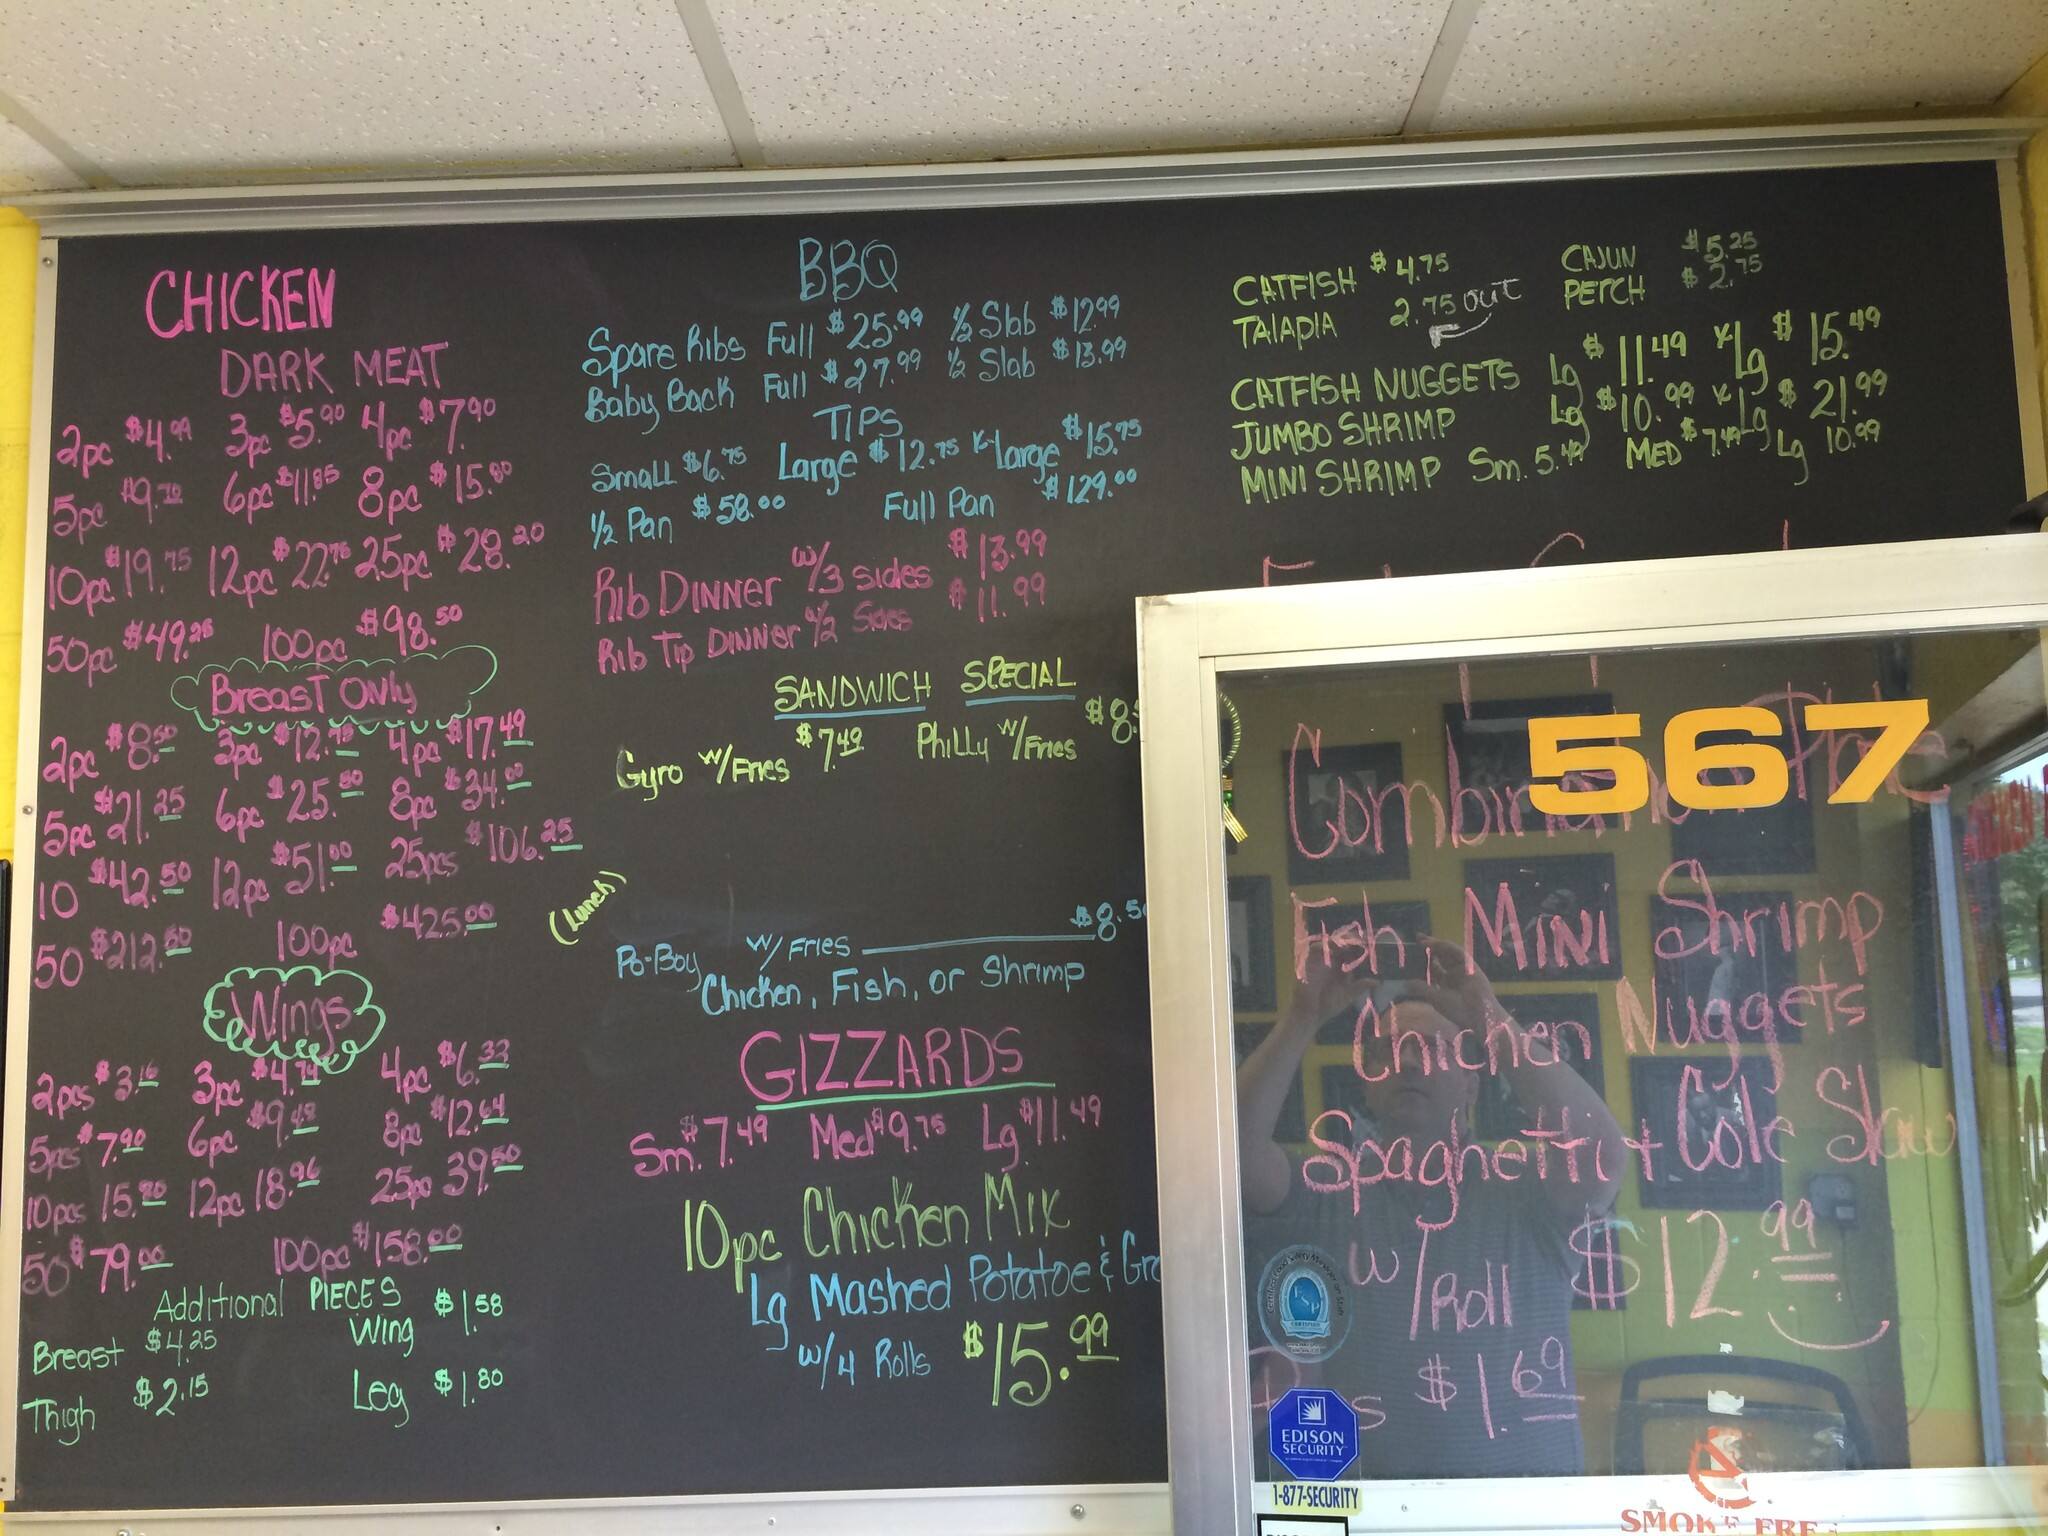 CHICKEN
DARK MEAT
2pc $4.99 3pc $5.90 4pc $7.90
5pc $9.70 6pc $11.85 8pc $15.80
10pc $19.75 12pc $22.75 25pc $28.20
50pc $49.25 100pc $98.50
Breast Only
2pc $8.50 3pc $12.75 4pc $17.49
5pc $21.25 6pc $25.50 8pc $34.00
10 $42.50 12pc $51.00 25pcs $106.25
50 $212.50 100pc $425.00
Wings
2pcs $3.16 3pc $4.74 4pc $6.32
5pcs $7.90 6pc $9.48 8pc $12.64
10pcs 15.80 12pc 18.96 25pc 39.50
50 $79.00 100pc $158.00
Additional PIECES
Breast $4.25 Wing $1.58
Thigh $2.15 Leg $1.80
BBQ
Spare Ribs Full $25.99 1/2 Slab $12.99
Baby Back Full $27.99 1/2 Slab $13.99
TIPS
Small $6.75 Large $12.75 X-Large $15.75
1/2 Pan $58.00 Full Pan $129.00
Rib DINNER w/3 sides $13.99
Rib Tip DINNER w/2 Sides $11.99
SANDWICH SPECIAL
Gyro w/Fries $7.49 Philly w/Fries $8.
(Lunch)
Po-Boy w/ Fries $8.50
Chicken, Fish, or Shrimp
GIZZARDS
Sm. $7.49 Med $9.75 Lg $11.49
10pc Chicken Mix
Lg Mashed Potatoe &
w/4 Rolls $15.99
CATFISH $4.75 CAJUN $5.25
TALAPIA 2.75 out PERCH $2.75
CATFISH NUGGETS Lg $11.49 XLg $15.49
JUMBO SHRIMP Lg $10.99 XLg $21.99
MINI SHRIMP Sm. 5.49 MED $7.49 Lg 10.99
567
Combination Plate
Fish, MINI Shrimp
Chicken Nuggets
Spaghetti + Cole Slaw
w/Roll $12.99
$1.69
EDISON
SECURITY
1-877-SECURITY
SMOKE FREE